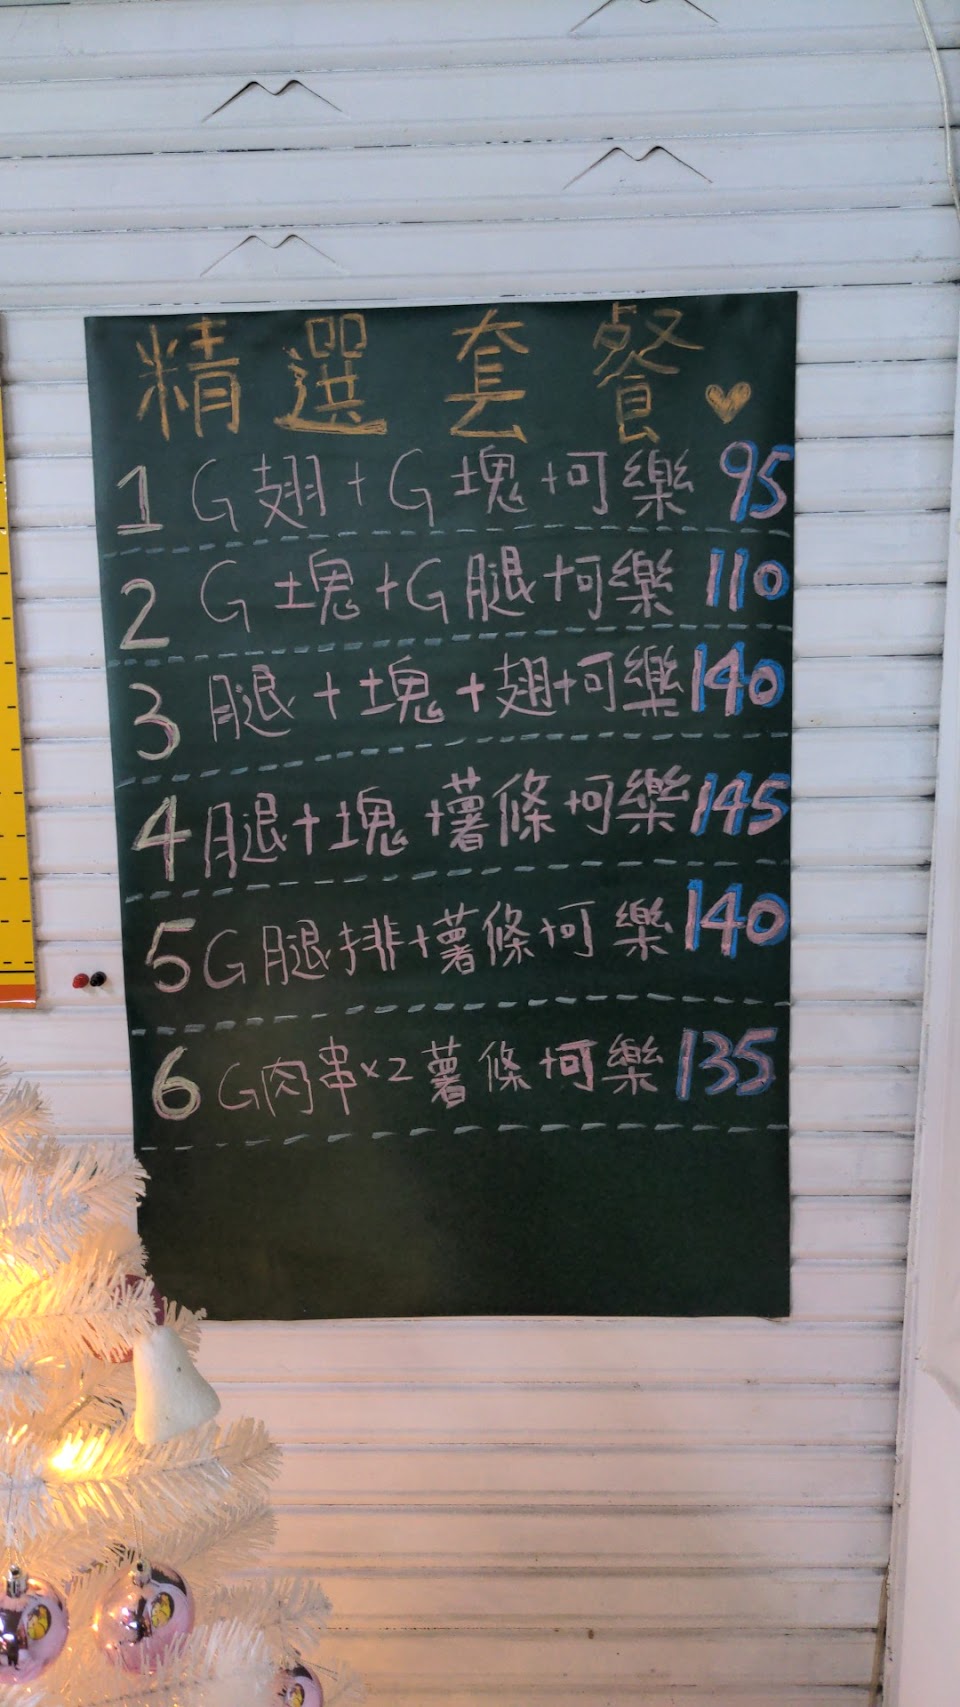 精選套餐♥
1 G翅+G塊+可樂 95
2 G塊+G腿+可樂 110
3 腿+塊+翅+可樂 140
4 腿+塊+薯條+可樂 145
5 G腿排+薯條+可樂 140
6 G肉串x2薯條+可樂 135